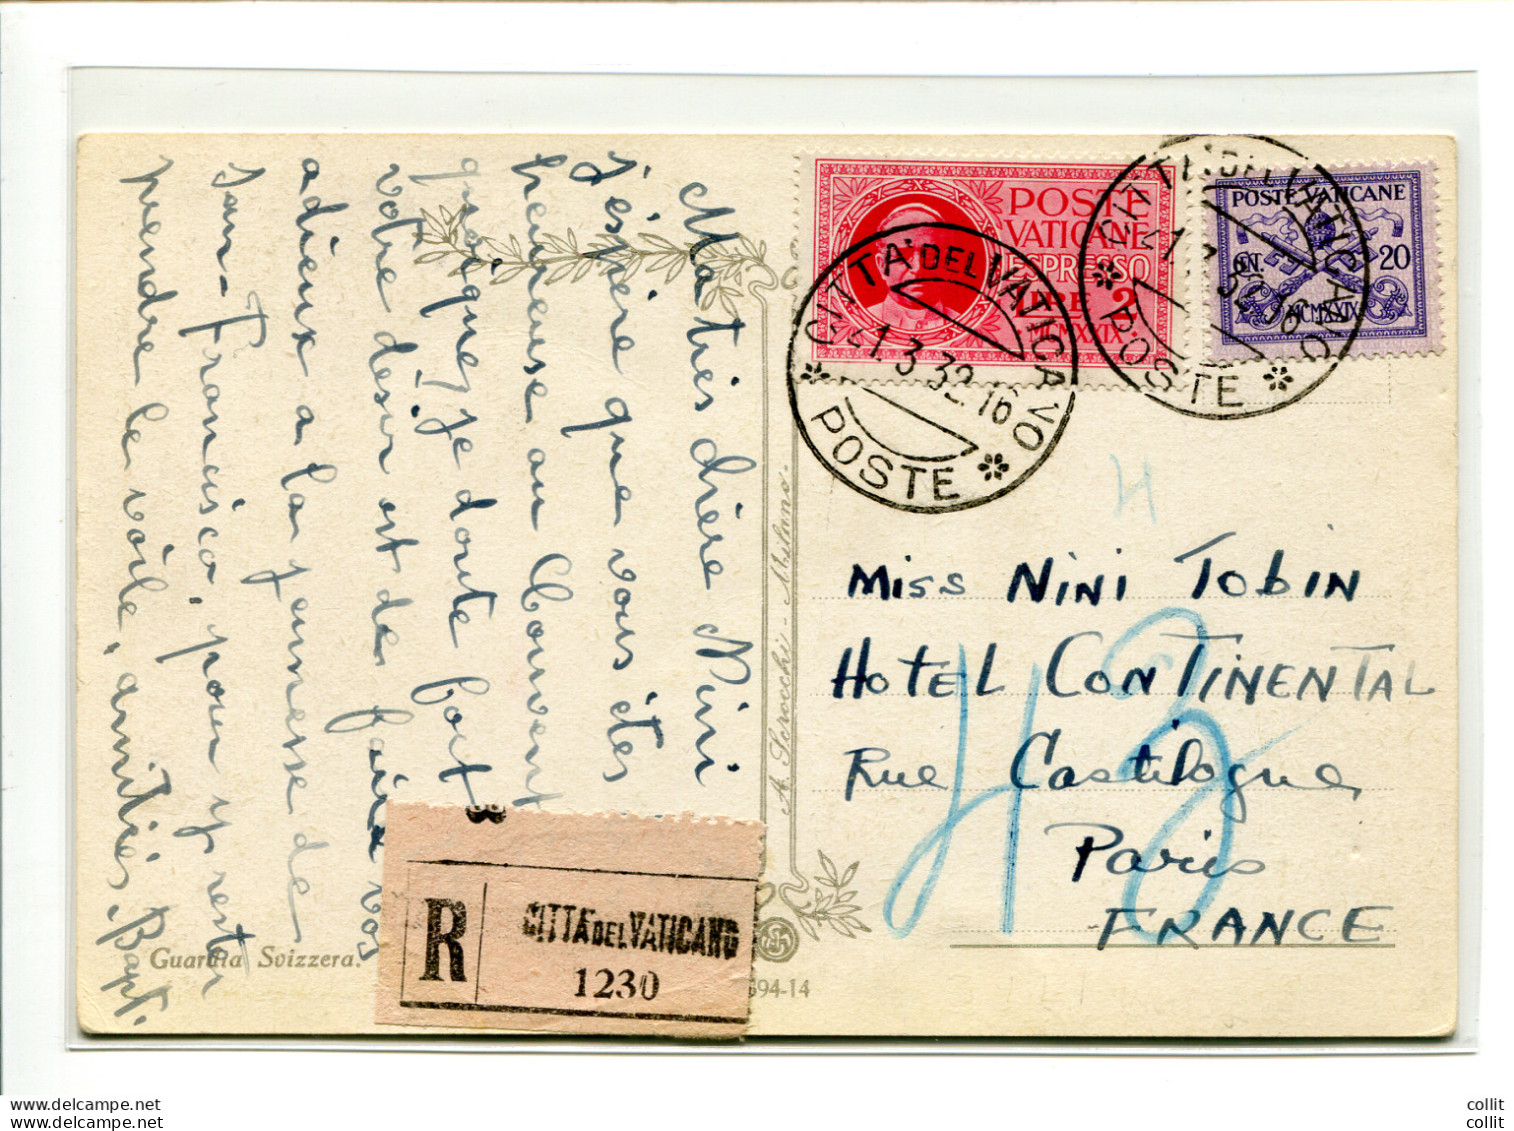 POSTE
VATICANE
ESPRESSO
LIRE 2
MCMXXIX
POSTE VATICANE
CENT. 20
MCMXXIX
CITTA DEL VATICANO
21.3.32.16
POSTE
CITTA DEL VATICANO
32.16
POSTE
H
Miss NINI TOBIN
HOTEL CONTINENTAL
Rue Castilogue
Paris
FRANCE
H3
chère Nini
J'espère que vous êtes
heureuse au Couvent
quoique je doute fort
votre désir est de faire vos
adieux a la jeunesse de
San-Francisco, pour y rester
prendre le voile, amitiés, Bapt.
A. Scrocchi - Milano -
Guardia Svizzera.
R
CITTA DEL VATICANO
1230
694-14
www.delcampe.net
www.delcampe.net
collit
collit